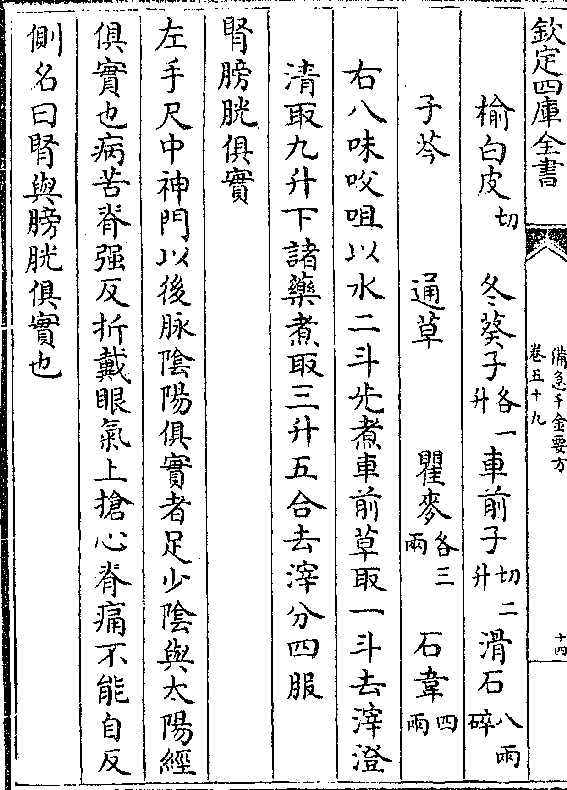 欽定四庫全書
備急千金要方
卷五十九
十四
榆白皮切 冬葵子各一升 車前子切二升 滑石八兩碎
子芩 通草 瞿麥各三兩 石韋四兩
右八味㕮咀以水二斗先煮車前草取一斗去滓澄
清取九升下諸藥煮取三升五合去滓分四服
腎膀胱俱實
左手尺中神門以後脉陰陽俱實者足少陰與太陽經
俱實也病苦脊强反折戴眼氣上搶心脊痛不能自反
側名曰腎與膀胱俱實也